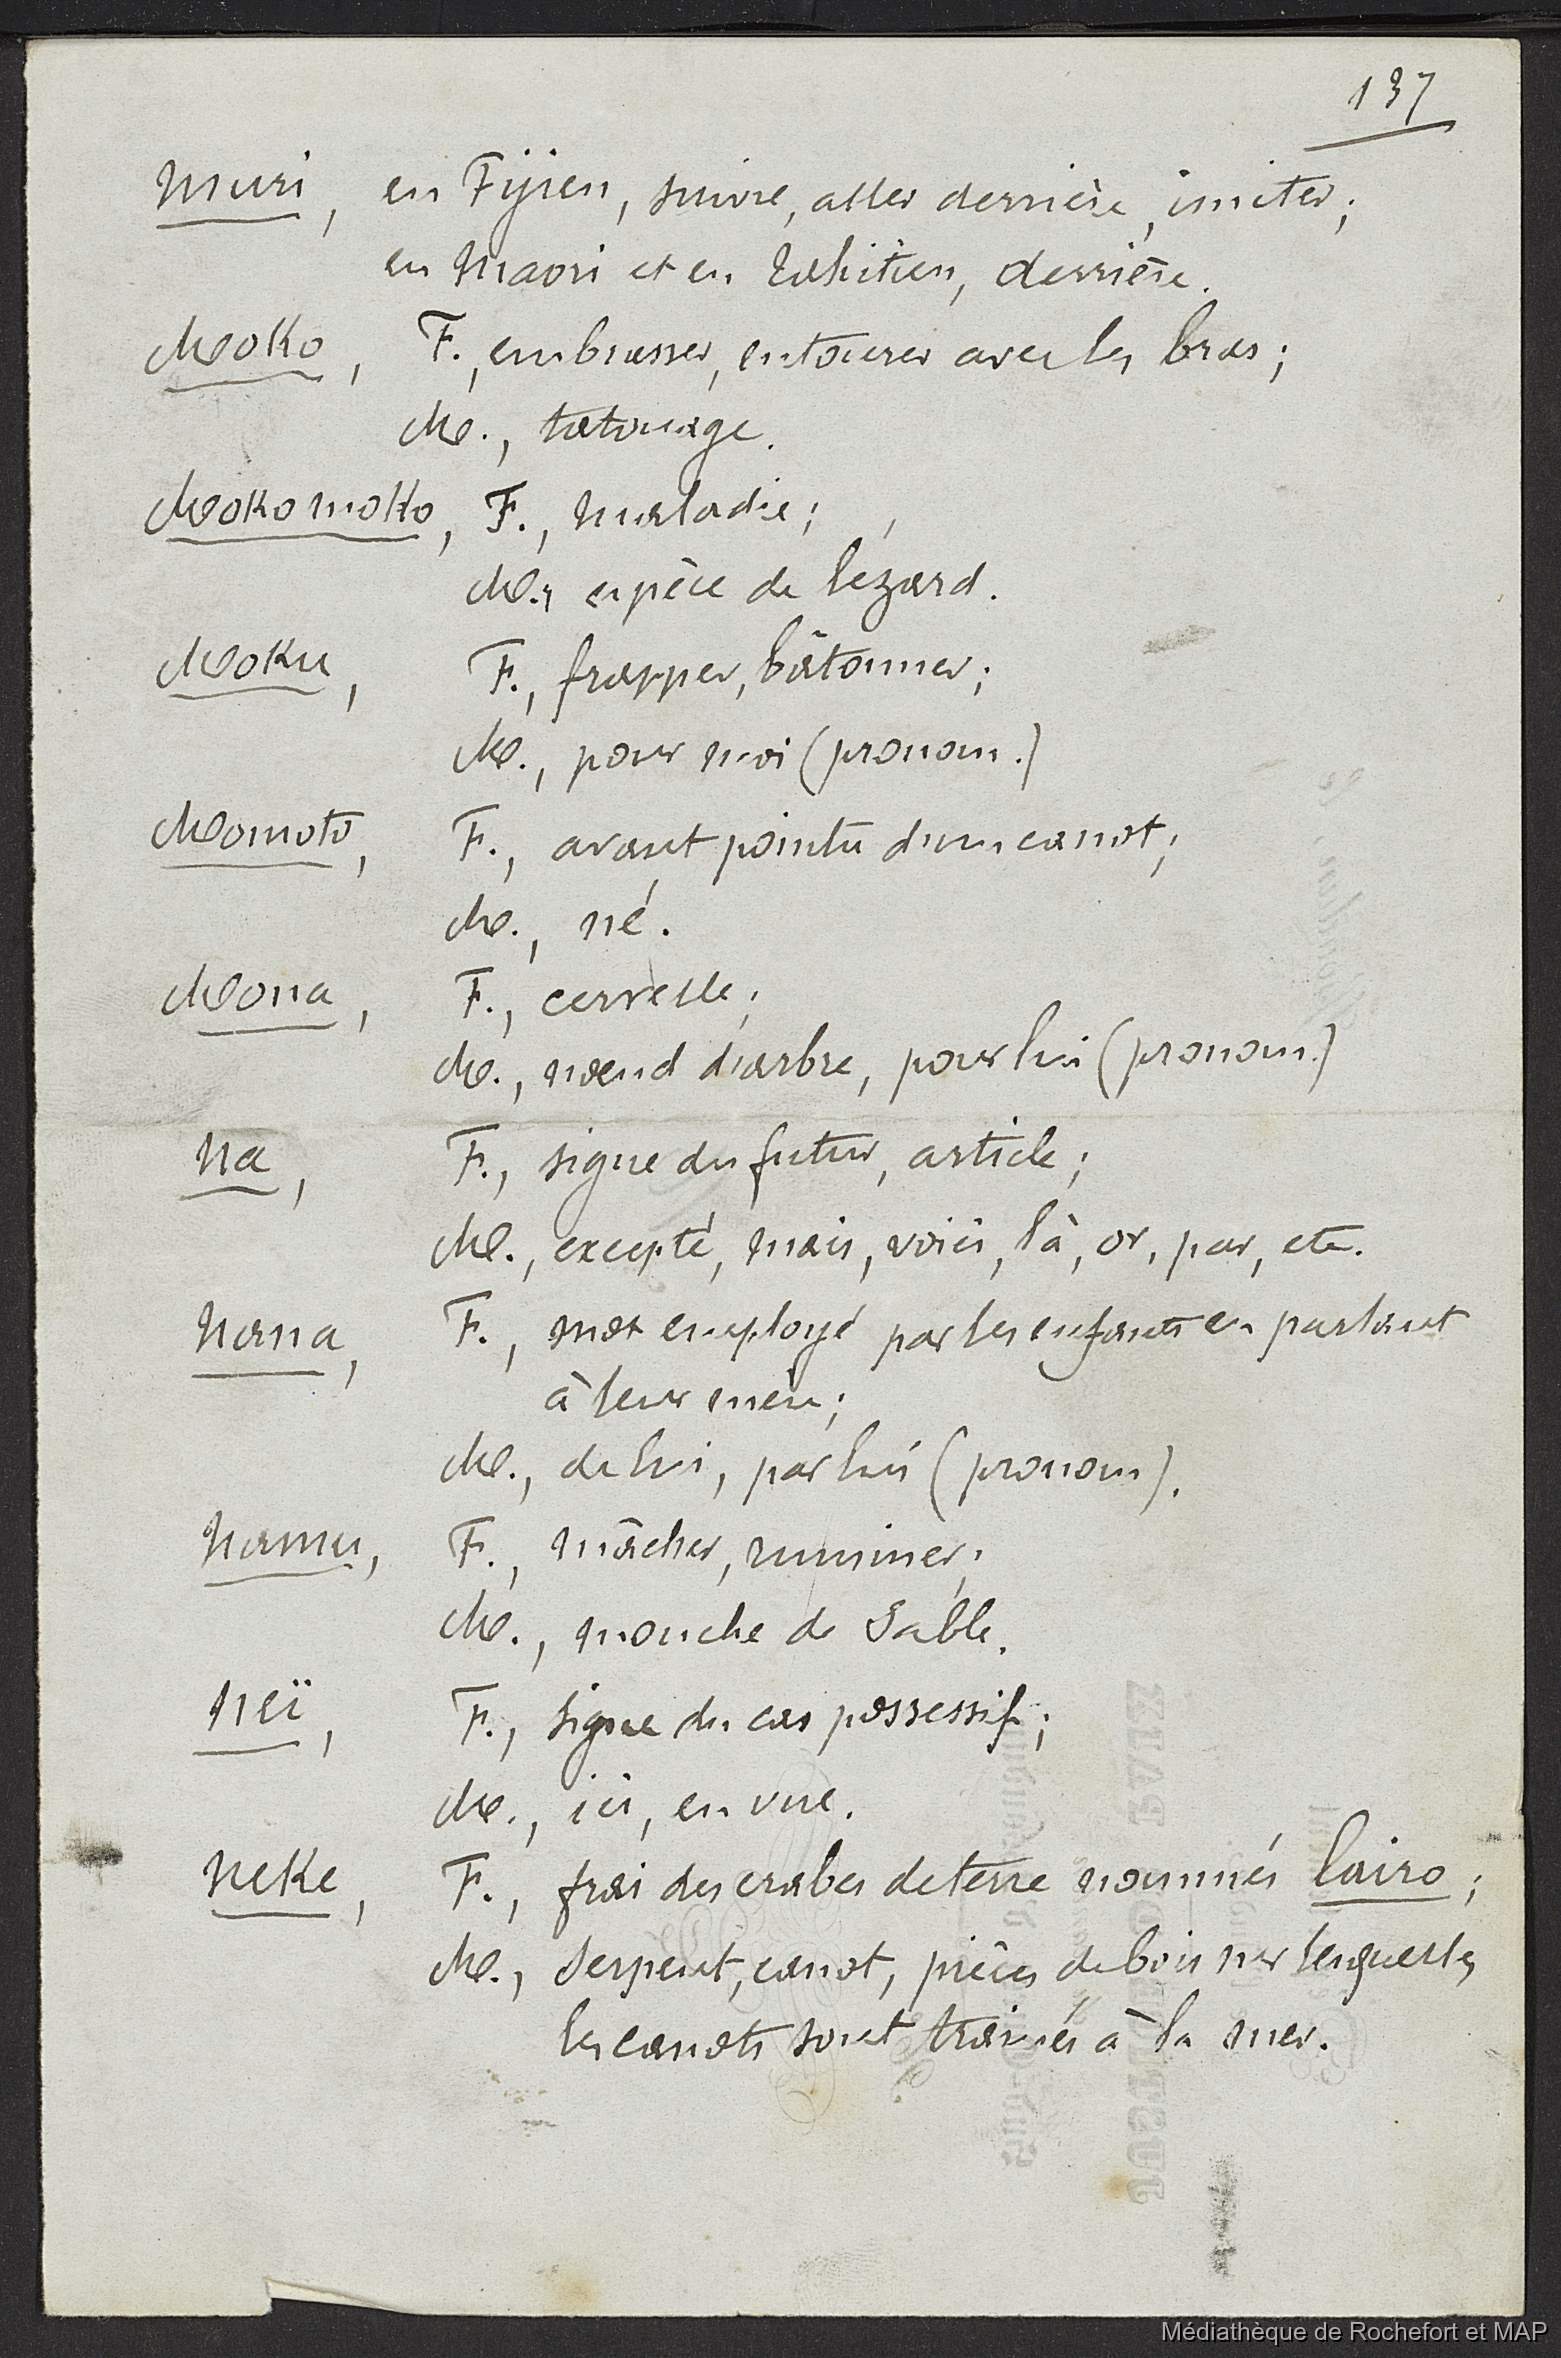 137
Muri, en Fijien, suivre, aller derrière, imiter;
en Maori et en Tahitien, derrière.
Moko, F., embrasser, entourer avec les bras;
M., tatouage.
Mokomoko, F., maladie;
M., espèce de lézard.
Moku, F., frapper, bâtonner;
M., pour moi (pronom.)
Momoto, F., avant pointu d'un canot;
M., né.
Mona, F., cervelle;
M., nœud d'arbre, pour lui (pronom.)
Na, F., signe du futur, article;
M., excepté, mais, voici, là, or, par, etc.
Nana, F., mot employé par les enfants en parlant
à leur mère;
M., de lui, par lui (pronom).
Namu, F., mâcher, ruminer;
M., mouche de sable.
Neï, F., signe du cas possessif;
M., ici, en vue.
Neke, F., frai des crabes de terre nommés lairo;
M., serpent, canot, pièces de bois sur lesquelles
les canots sont trainés à la mer.
Médiathèque de Rochefort et MAP